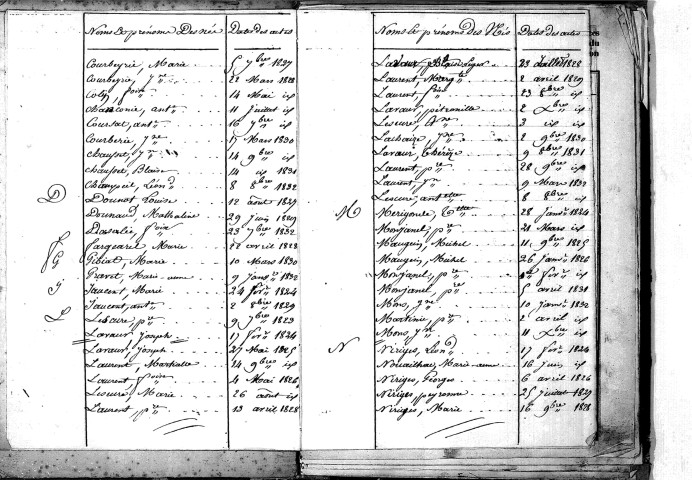 Noms & prénoms Des née Dates des actes
Courbeyrie, Marie 5 7bre 1827
Courbeyrie, Jne 22 Mars 1828
Coly, foin 14 Mai id
Chanconie, antne 11 Juillet id
Courtet, antne 16 7bre id
Courberie, Jne 17 Mars 1830
Chausse, Jne 14 9bre id
Chausse, Blaise 14 id 1831
Chaupeil, Léond 8 8bre 1832
D Dounot Louise 12 aout 1829
Dournaud, Mathaline 29 Juin 1829
Dasalie, foin 23 7bre 1832
F Fargearie Marie 22 avril 1828
G Gibiat, Marie 10 Mars 1830
Gravet, Marie anne 9 Janer 1832
J Jaucent Marie 24 fer 1824
Jaucent, antne 2 8bre 1829
L Lescure, pre 9 7bre 1823
Lavaur Joseph 17 fer 1824
Lavaur, Joseph 27 Mai 1825
Laurent, Martialle 14 9bre id
Laurent, foin 4 Mai 1826
Lescure, Marie 26 aout id
Laurent, pre 13 avril 1828
Noms & prénoms des Nés Dates des actes
Lavaur, Léger 23 Juillet 1828
Laurent, Margte 2 avril 1829
Laurent, foin 23 8bre id
Lavaur, peironnille 2 Xbre id
Lescure, 3 id id
Lachaize, Jne 2 9bre 1830
Lavaur, Thérèze 9 8bre 1831
Laurent, pre 28 9bre id
Laurent, Jne 9 Mars 1832
Lescure, antette 8 8bre id
M Merigonde, Cette 28 Janer 1824
Monjanel, pre 21 Mars id
Mauguin, Michel 11 9bre 1825
Mauguin, Michel 26 Janer 1826
Monjanel, pre fer id
Monjanel, pre 5 avril 1831
Mons, Jne 10 Janer 1832
Martinie, pre 2 avril id
Mons, Jne 11 Xbre id
N Niriges, Léond 17 fer 1824
Nouailhac, Marie anne 16 Juin id
Niriges, Georges 6 avril 1826
Niriges, peyronne 25 Juillet 1829
Niriges, Marie 16 9bre 1828